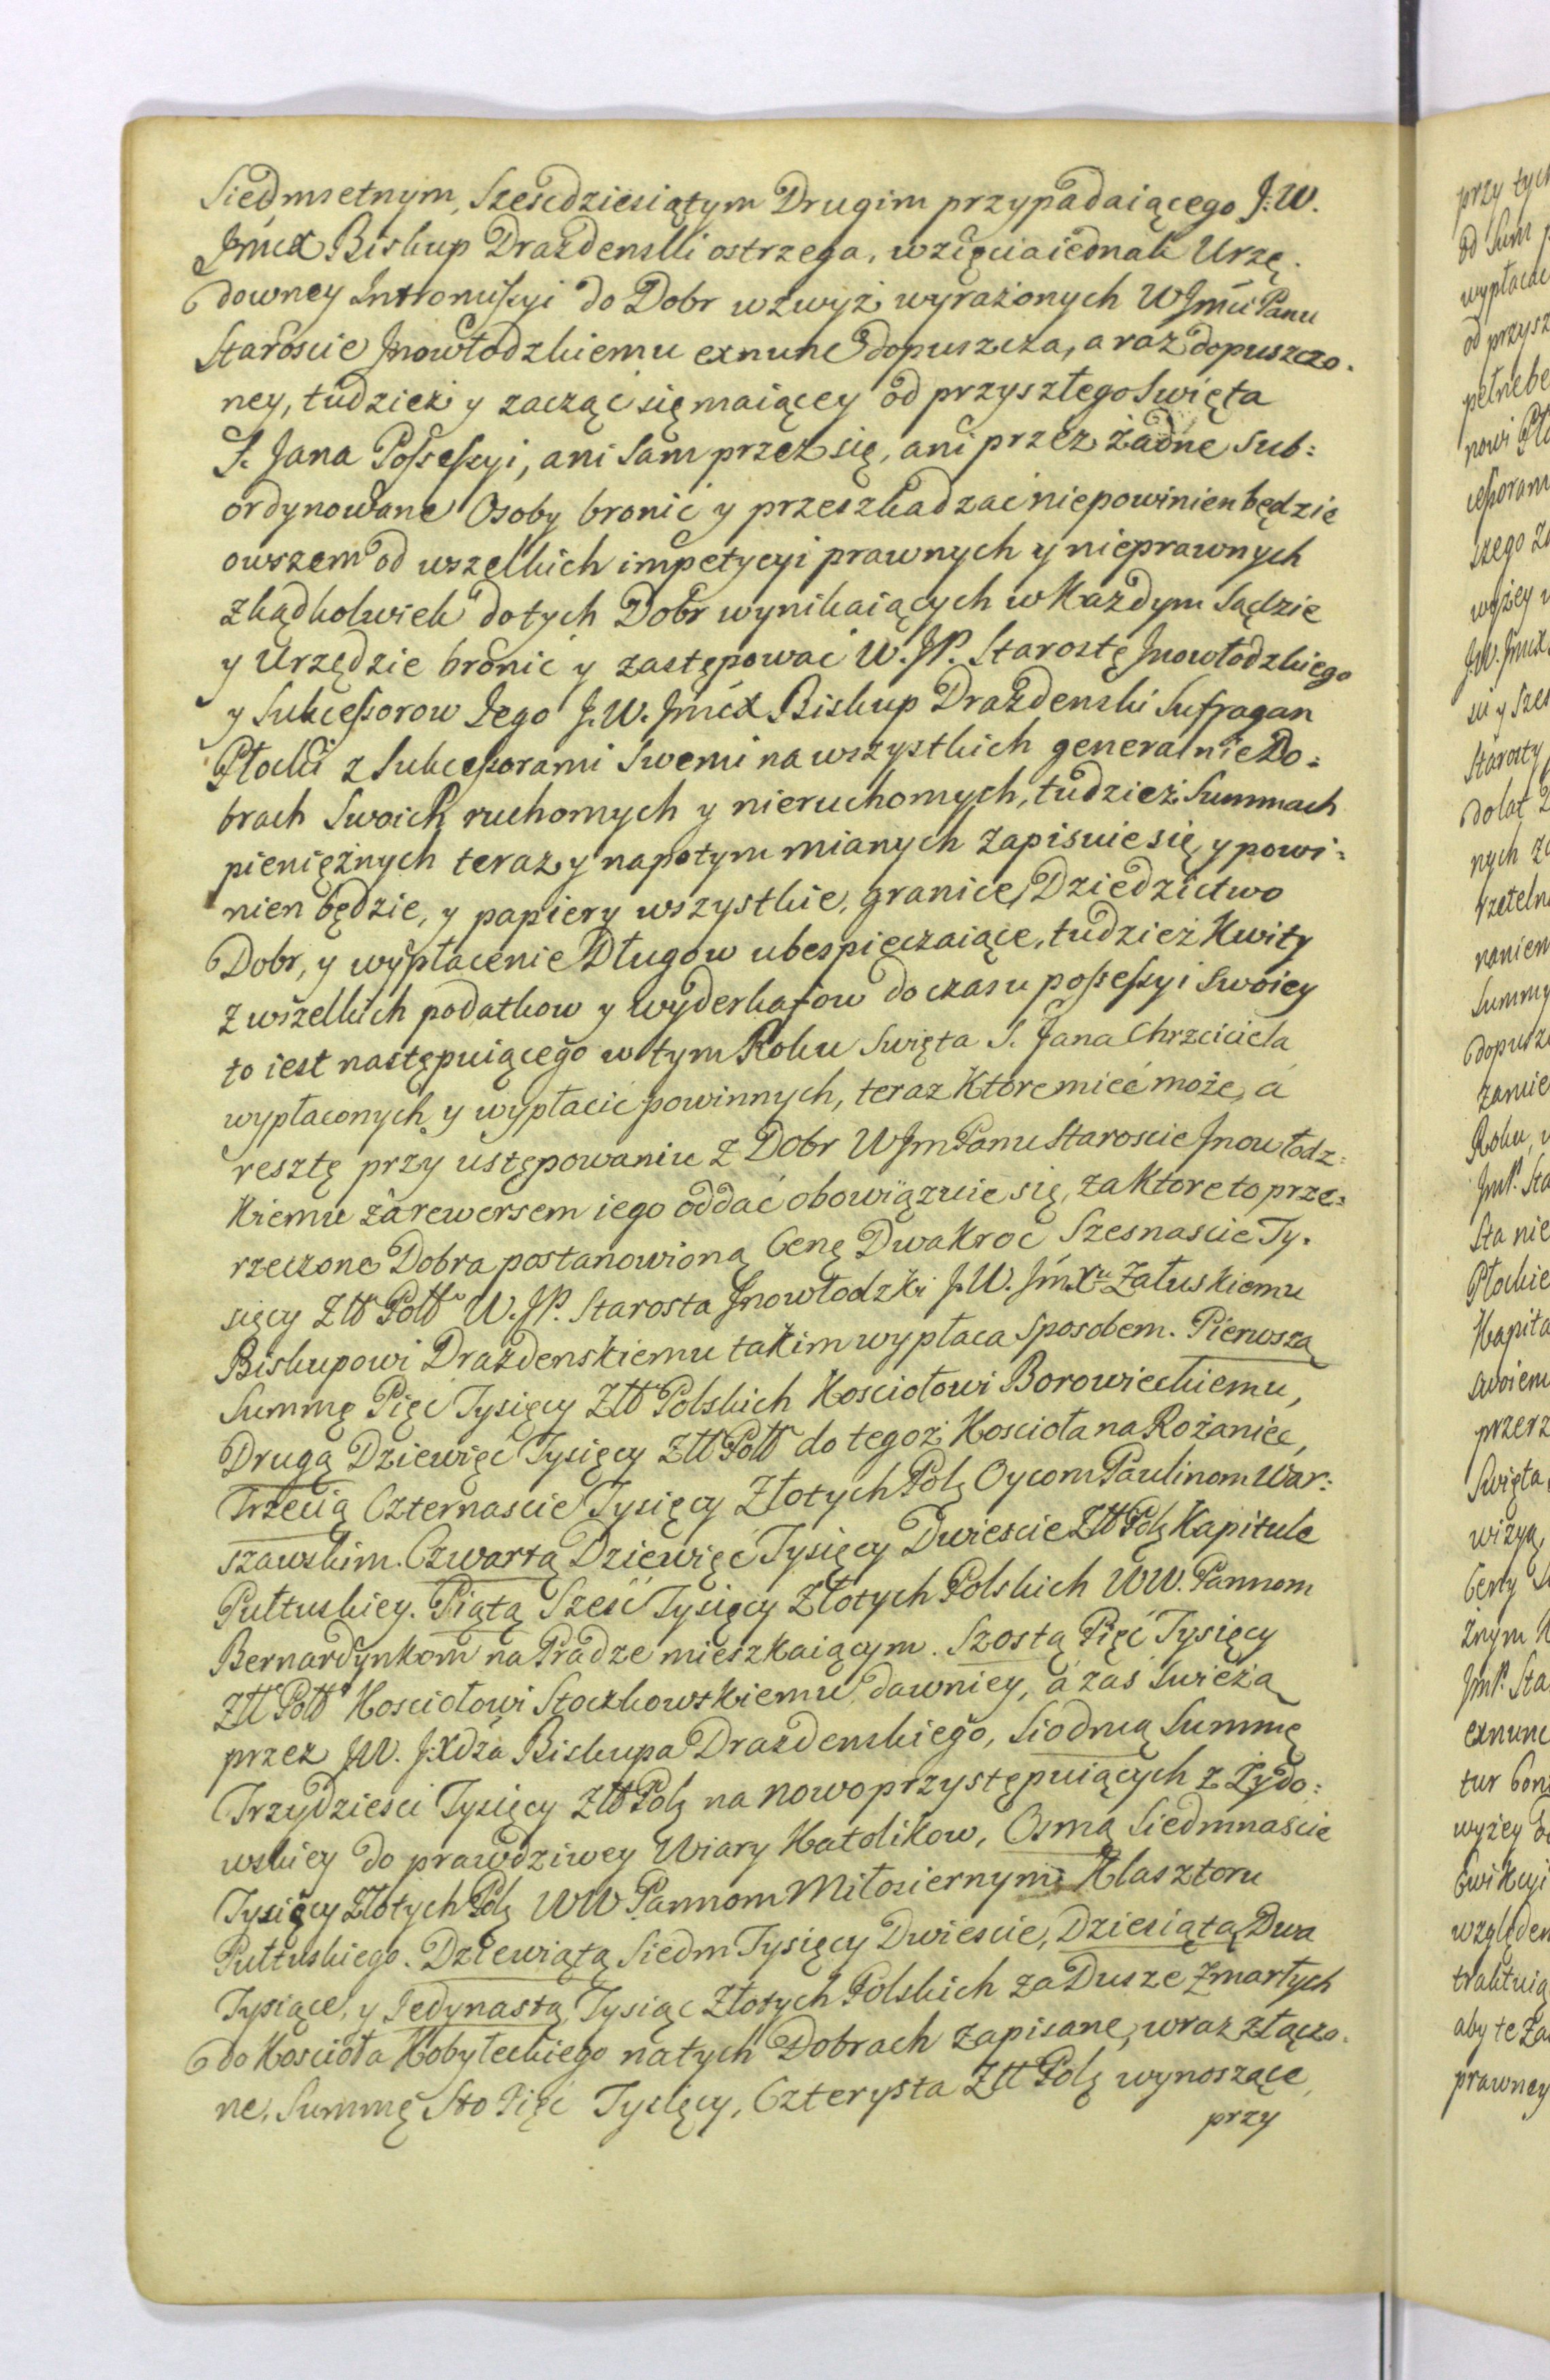 Siedmsetnym, Szescdziesiątym Drugim przypadaiącego J:W.
Jmćx Biskup Drazdenski ostrzega, wzięcia iednak Urzę-
downey Intromissyi do Dobr wzwyż wyrażonych WJmći Panu
Staroscie Jnowłodzkiemu exnunc dopuszcza, a raz dopuszczo-
ney, tudzież y zacząć się maiącey od przyszłego Swięta
S. Jana Possessyi, ani sam przez się, ani przez żadne sub=
ordynowane Osoby bronić y przeszkadzać niepowinien będzie
owszem od wszelkich impetycyi prawnych y nieprawnych
zkądkolwiek do tych Dobr wynikaiących w Każdym Sądzie
y Urzędzie bronić y zastępować W. JP. Starostę Jnowłodzkiego
y Sukcessorow Jego J.W. Jmćx Biskup Drazdenski Sufragan
Płocki z Sukcessorami Swemi na wszystkich generalnie Do=
brach Swoich ruchomych y nieruchomych, tudzież Summach
pieniężnych teraz y napotym mianych zapisuie się, y powi=
nien będzie, y papiery wszystkie, granice, Dziedzictwo
Dobr, y wypłacenie Długow ubespieczaiące, tudzież Kwity
z wszelkich podatkow y wyderkafow do czasu possessyi swoiey
to iest następuiącego w tym Roku Swięta S. Jana Chrzciciela
wypłaconych y wypłacić powinnych, teraz Które mieć może, a
resztę przy ustępowaniu z Dobr WJmPanu Staroscie Jnowłodz=
Kiemu za rewersem iego oddać obowiązuie się, za Ktore to prze=
rzeczone Dobra postanowioną Cenę Dwakroć Szesnascie Ty-
sięcy Złł Polł W. JP. Starosta Jnowłodzki J.W. JmXu Załuskiemu
Biskupowi Drazdenskiemu takim wypłaca sposobem. Pierwszą
Summę Pięć Tysięcy Złł Polskich Kosciołowi Borowieckiemu,
Drugą Dziewięć Tysięcy Złł Polł do tegoż Kosciola na Rożaniec,
Trzecią Czternascie Tysięcy Złotych Pol: Oycom Paulinom War=
szawskim. Czwartą Dziewięć Tysięcy Dwiescie Złł Pol: Kapitule
Pułtuskiey. Piątą Sześć Tysięcy Złotych Polskich WW. Pannom
Bernardynkom na Pradze mieszkaiącym. Szostą Pięć Tysięcy
Złł Polł Kosciołowi Stoczkowskiemu dawniey, a zaś swieżą
przez JW. J:Xdza Biskupa Drazdenskiego, Siodmą Summę
Trzydziesci Tysięcy Złł Pol: na nowo przystępuiących z Żydo=
wskiey do prawdziwey Wiary Katolikow, Osmą Siedmnascie
Tysięcy Złotych Pol: WW Pannom Miłosiernym Klasztoru
Pułtuskiego. Dziewiątą Siedm Tysięcy Dwiescie, Dziesiątą Dwa
Tysiące, y Jedynastą Tysiąc Złotych Polskich za Dusze Zmarłych
do Kościoła Kobyłeckiego na tych Dobrach zapisane, wraz złączo-
ne, Summę Sto Pięć Tysięcy, Czterysta Złł Pol: wynoszące
przy